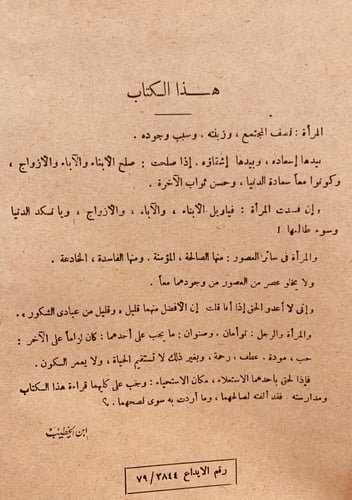 هـــذا الكتاب
المرأة : نصف المجتمع ، وزينته . وسبب وجوده .
بيدها إسعاده ، وبيدها إشقاؤه . إذا صلحت : صلح الأبناء والآباء والأزواج ،
وكونوا معاً سعادة الدنيا ، وحسن ثواب الآخرة .
وإن فسدت المرأة : فياويل الأبناء ، والآباء ، والأزواج ، ويا نكد الدنيا
وسوء طالعها !
والمرأة في سائر العصور : منها الصالحة ، المؤمنة . ومنها الفاسدة ، الخادعة .
ولا يخلو عصر من العصور من وجودهما معاً .
وإني لا أعدو الحق إذا أنا قلت إن الأفضل منهما قليل « وقليل من عبادي الشكور » .
والمرأة والرجل : توأمان . وصنوان : ما يجب على أحدهما : كان لزاماً على الآخر :
حب ، مودة . عطف ، رحمة ، وبغير ذلك لا تستقيم الحياة ، ولا يعمر السكون .
فإذا لحق بأحدهما الاستعلاء ، مكان الاستحياء : وجب على كليهما قراءة هذا الكتاب
ومدارسته . فقد ألفته لصالحهما ، وما أردت به سوى نصحهما . ؟
ابن الخطيب
رقم الايداع ٣٨٤٤ / ٧٩